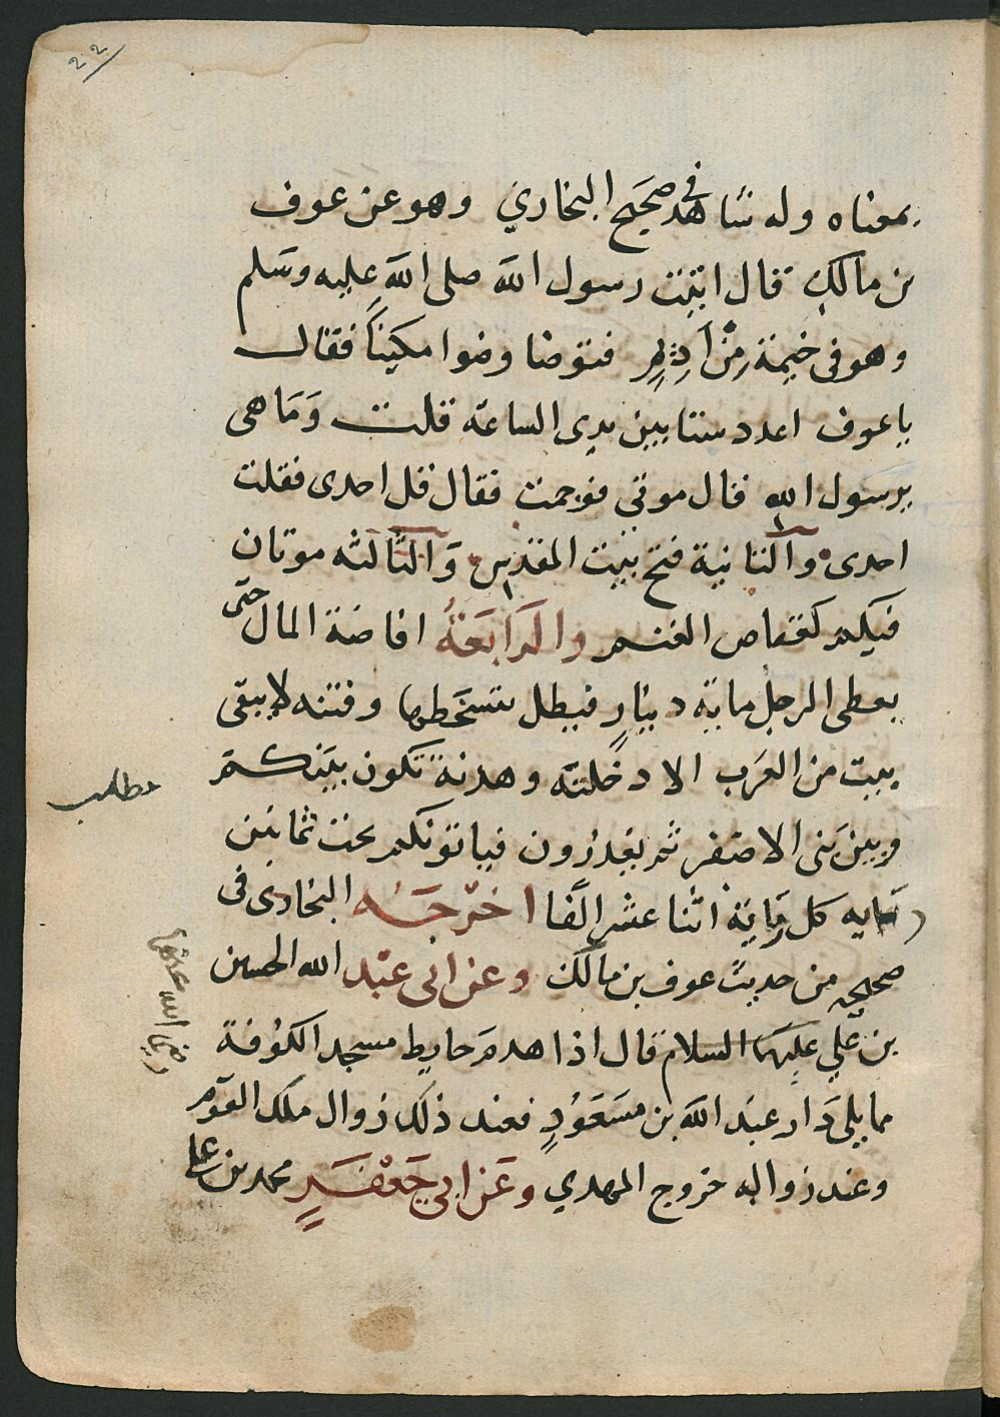 ٢٢
بمعناه وله شاهد في صحيح البخاري وهو عن عوف
بن مالك قال اتيت رسول الله صلى الله عليه وسلم
وهو في خيمة من ادم فتوضا وضوا مكينا فقال
ياعوف اعدد ستا بين يدي الساعة قلت وما هي
يرسول الله قال موتي فوجمت فقال قل احدى فقلت
احدى والثانية فتح بيت المقدس والثالثه موتان
فيكم كقعاص الغنم والرابعة افاضة المال حتى
يعطى الرجل ماية دينار فيظل يتسخطها وفتنه لا يبقى
بيت من العرب الا دخلته وهدنة تكون بينكم
وبين بني الاصفر ثم يغدرون فياتونكم تحت ثمانين
راية كل راية اثنا عشر الفا اخرجه البخارى فى
صحيحه من حديث عوف بن مالك وعن ابى عبد الله الحسين
بن علي عليهما السلام قال اذا هدم حايط مسجد الكوفة
مما يلي دار عبد الله بن مسعود فعند ذلك زوال ملك القوم
وعند زواله خروج المهدي وعن ابي جعفر محمد بن علي
مطلب
رضي الله عنهما